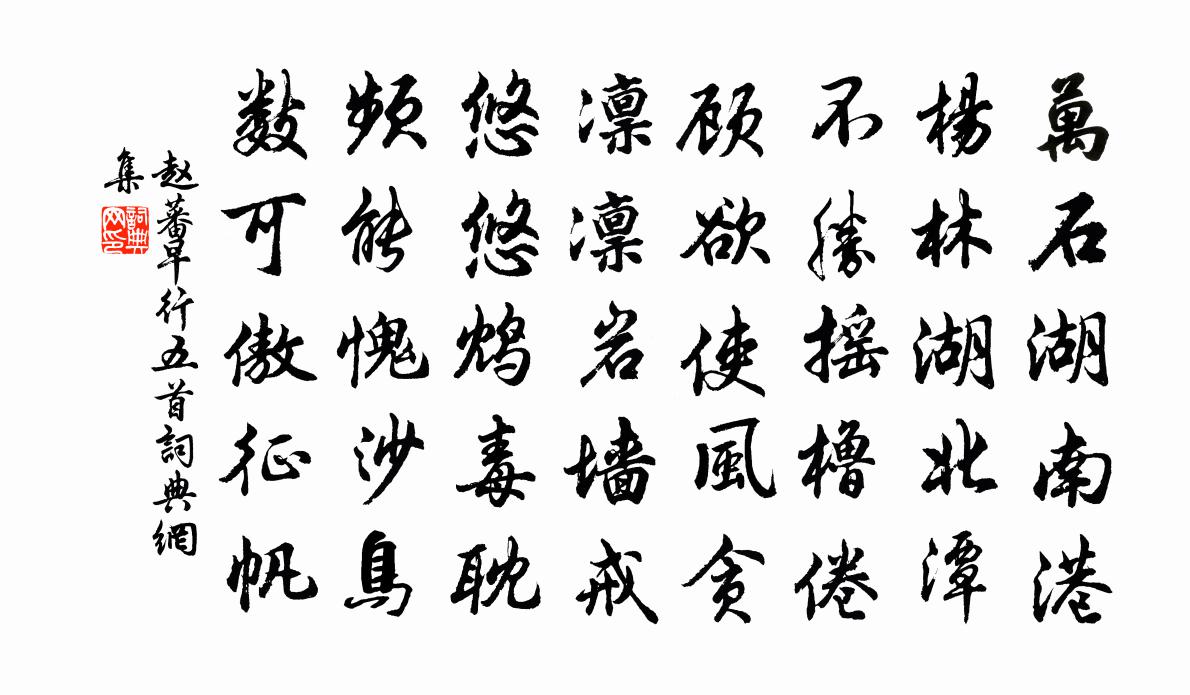 萬石湖南港
楊林湖北潭
不勝摇櫓倦
顾欲使風貪
凛凛岩墙戒
悠悠鸩毒耽
频能愧沙鳥
数可傲征帆
赵蕃早行五首詞典網
集
詞典网印